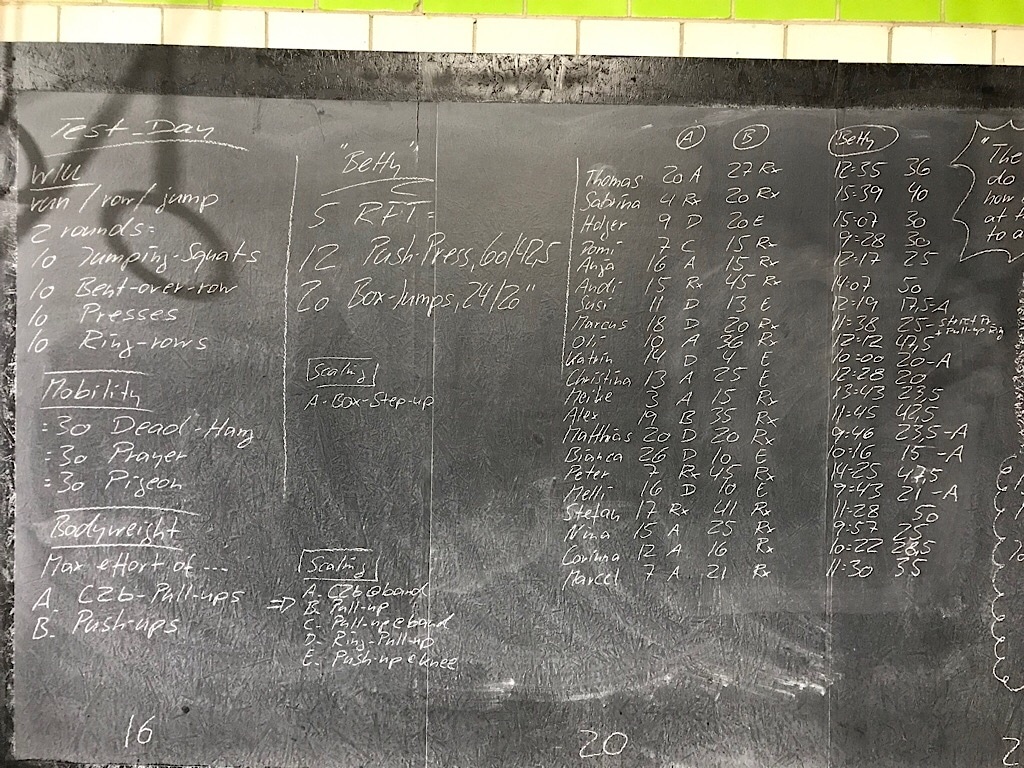 Test-Day
W/U
run / row / jump
2 rounds:
10 Jumping-Squats
10 Bent-over-row
10 Presses
10 Ring-rows
Mobility
:30 Dead-Hang
:30 Prayer
:30 Pigeon
Bodyweight
Max effort of ...
A. C2b-Pull-ups =>
B. Push-ups
16
"Betty"
5 RFT:
12 Push-Press, 60/42,5
20 Box-Jumps, 24/20"
Scaling
A-Box-Step-up
Scaling
A. C2b@band
B. Pull-up
C. Pull-up@band
D. Ring-Pull-up
E. Push-up@knee
A B Betty
Thomas 20 A 27 Rx 12:35 36
Sabrina 4 Rx 20 Rx 15:39 40
Holger 9 D 20 E 15:07 30
Domi 7 C 15 Rx 9:28 30
Anja 16 A 15 Rx 12:17 25
Andi 15 Rx 45 Rx 14:07 50
Susi 11 D 13 E 12:19 17,5-A
Marcus 18 D 20 Rx 11:38 25-
Oli 10 A 36 Rx 12:12 47,5
Katrin 14 D 4 E 10:00 20-A
Christina 13 A 25 E 12:28 20
Meike 3 A 15 Rx 13:43 23,5
Alex 19 B 35 Rx 11:45 42,5
Matthias 20 D 20 Rx 9:46 23,5-A
Bianca 26 D 10 E 10:16 15-A
Peter 7 Rx 45 Rx 14:25 47,5
Melli 16 D 10 E 9:43 21-A
Stefan 17 Rx 41 Rx 11:28 50
Nina 15 A 25 Rx 9:57 25
Corinna 12 A 16 Rx 10:22 28,5
Marcel 7 A 21 Rx 11:30 35
20
"The
do
how
at t
to a
2